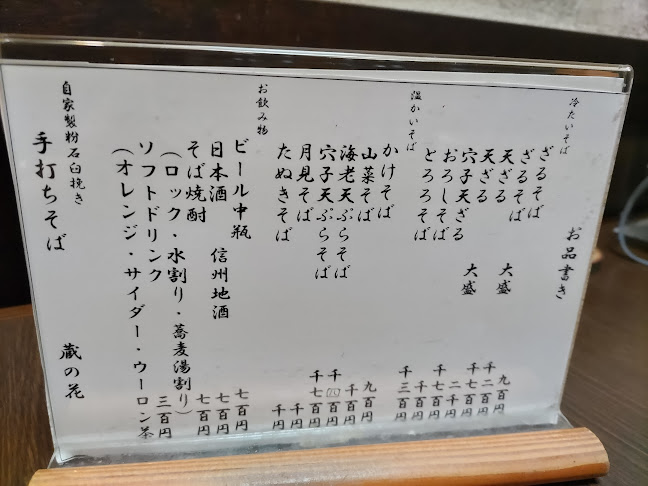 お品書き
冷たいそば
ざるそば 九百円
ざるそば 大盛 千二百円
天ざる 千七百円
天ざる 大盛 二千円
穴子天ざる 千七百円
おろしそば 千百円
とろろそば 千三百円
温かいそば
かけそば 九百円
山菜そば 千百円
海老天ぷらそば 千八百円
穴子天ぷらそば 千七百円
月見そば 千円
たぬきそば 千円
お飲み物
ビール中瓶 七百円
日本酒 信州地酒 七百円
そば焼酎 七百円
（ロック・水割り・蕎麦湯割り）
ソフトドリンク 三百円
（オレンジ・サイダー・ウーロン茶
自家製粉石臼挽き
手打ちそば 蔵の花